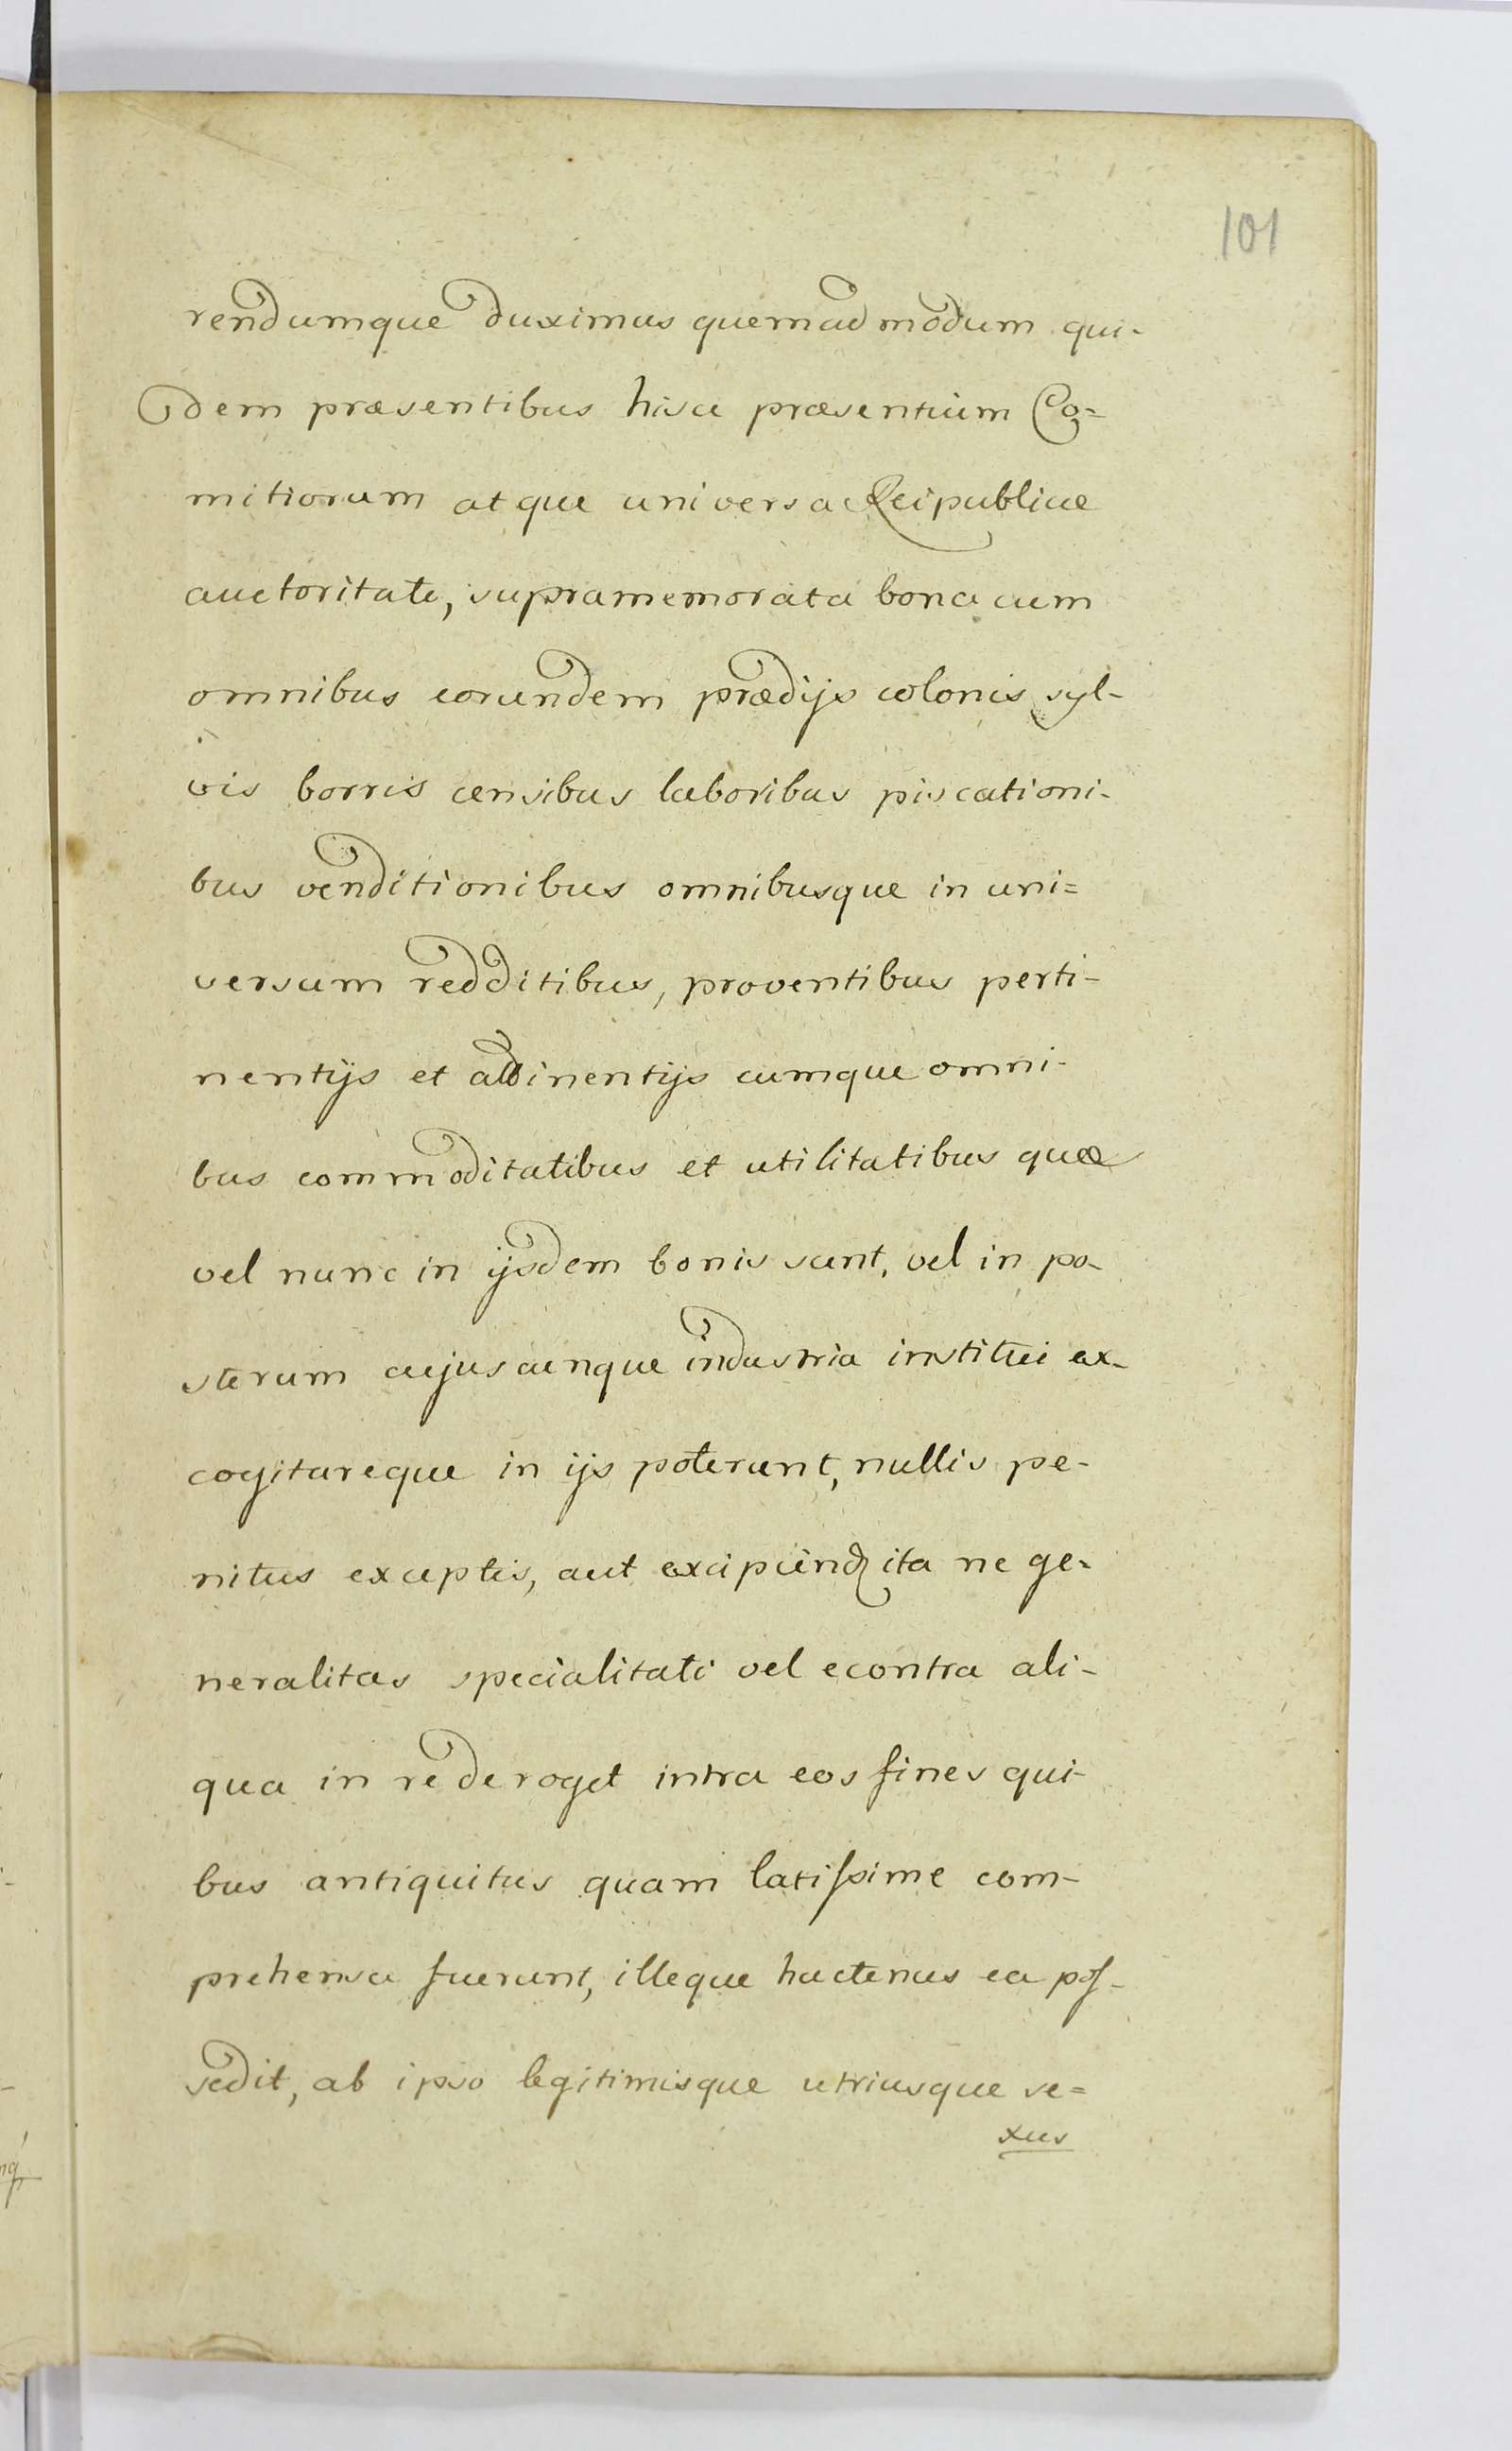 101
rendumque duximus quemadmodum qui-
dem præsentibus hisce præsentium Co=
mitiorum atque universæ Reipublicæ
auctoritate, supramemorata bona cum
omnibus eorundem prædijs colonis syl-
vis borris censibus laboribus piscationi-
bus venditionibus omnibusque in uni=
versum redditibus, proventibus perti-
nentijs et attinentijs cumque omni-
bus commoditatibus et utilitatibus quæ
vel nunc in ijsdem bonis sunt, vel in po-
sterum cujuscunque industria institui ex-
cogitareque in ijs poterunt, nullis pe-
nitus exceptis, aut excipiend ita ne ge-
neralitas specialitati vel econtra ali-
qua in re deroget intra eos fines qui-
bus antiquitus quam latissime com-
prehensa fuerunt, illeque hactenus ea pos-
sedit, ab ipso legitimisque utriusque se=
xus